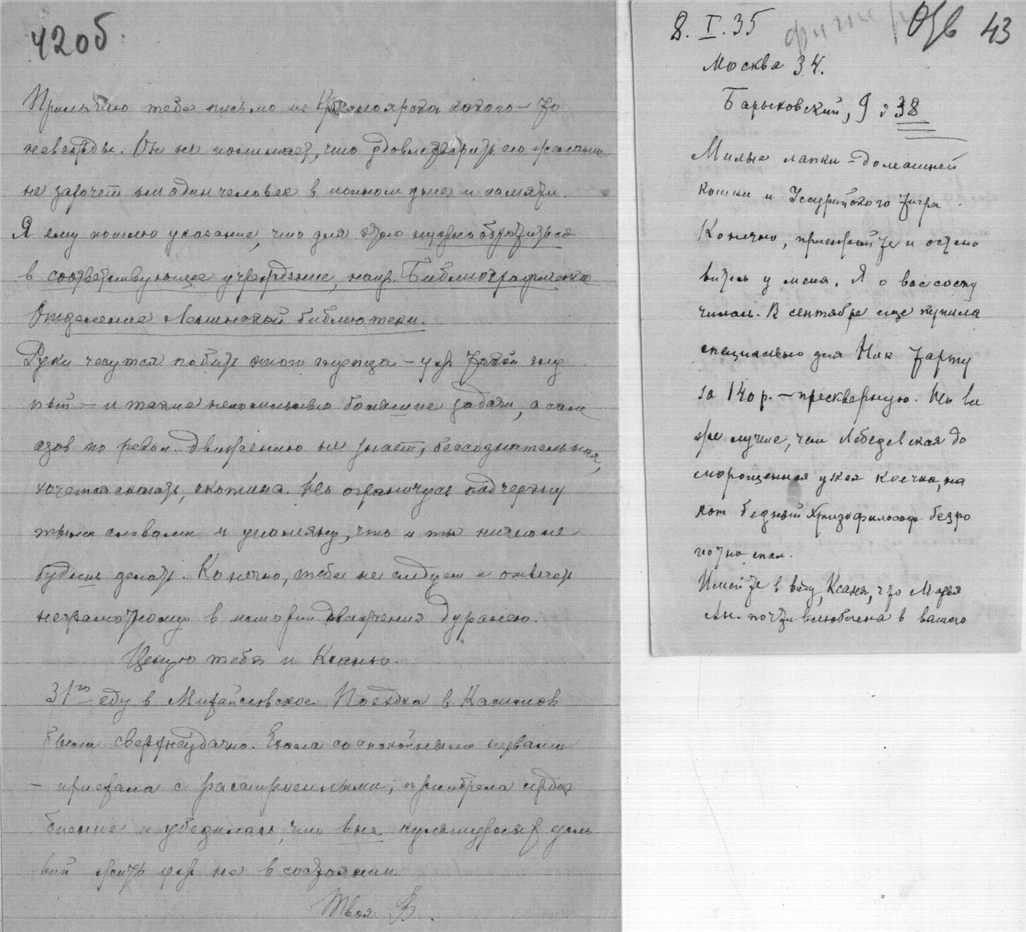 42об.
Прилагаю тебе письмо из Красноярска какого-то
невежды. Он не понимает, что удовлетворить его
не захочет ни один человек в полном уме и памяти.
Я ему пошлю указание, что для этого нужно обратиться
в соответствующее учреждение, напр. Библиографическое
Отделение Ленинской библиотеки.
Руки чешутся побить этого – уж
– и такие непосильно большие задачи, а сам
азов по револ. движению не знает,
хочется сказать, скотина. Но ограничусь подчеркну
тыми словами и упомяну, что и ты ничего не
будешь делать. Конечно, тебе не следует и отвечать
неграмотному в истории движения дураку.
Целую тебя и Ксению.
31го еду в Михайловское. Поездка в Касимов
была сверхнеудачна. Ехала со спокойными нервами
– приехала с расстроенными, приобрела сердце
биение и убедилась, что вне
жить уже не в состоянии.
Твоя В.
8.I.35
43
Москва 34.
Барыковский, 9 38
Милые лапки – домашней
кошки и Уссурийского тигра.
Конечно, приезжайте и остано
витесь у меня. Я о вас соску
чилась. В сентябре еще купила
специально для
за 140 р. – прескверную. Но все
же лучше, чем Лебедевская до
морощенная узкая коечка, на
кот. бедный безро
потно спал.
Имейте в виду, Ксеня, что Мария
Ан. почти влюблена в вашего